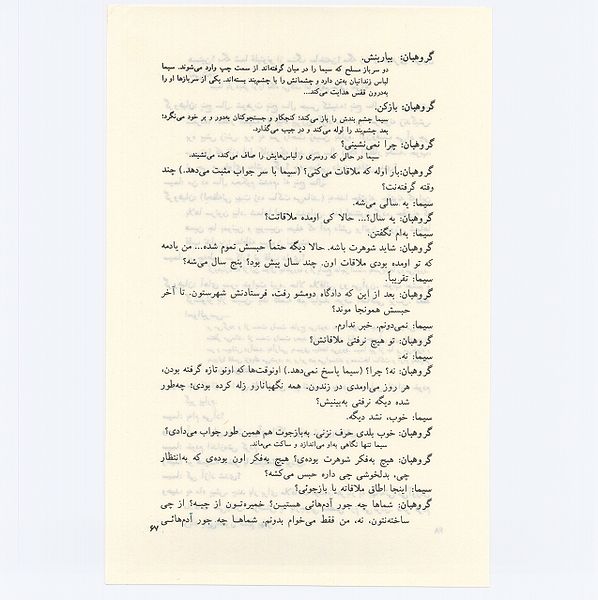 گروهبان: بیارینش.
دو سرباز مسلح که سیما را در میان گرفته‌اند از سمت چپ وارد می‌شوند. سیما
لباس زندانیان به‌تن دارد و چشمانش را با چشم‌بند بسته‌اند. یکی از سربازها او را
به‌درون قفس هدایت می‌کند...
گروهبان: بازکن.
سیما چشم بندش را باز می‌کند؛ کنجکاو و جستجوکنان به‌دور و بر خود می‌نگرد؛
بعد چشم‌بند را لوله می‌کند و در جیب می‌گذارد.
گروهبان: چرا نمی‌نشینی؟
سیما در حالی که روسری و لباس‌هایش را صاف می‌کند، می‌نشیند.
گروهبان: بار اوله که ملاقات می‌کنی؟ (سیما با سر جواب مثبت می‌دهد.) چند
وقته گرفته‌نت؟
سیما: یه سالی می‌شه.
گروهبان: یه سال؟... حالا کی اومده ملاقاتت؟
سیما: به‌ام نگفتن.
گروهبان: شاید شوهرت باشه. حالا دیگه حتماً حبسش تموم شده... من یادمه
که تو اومده بودی ملاقات اون. چند سال پیش بود؟ پنج سال می‌شه؟
سیما: تقریباً.
گروهبان: بعد از این که دادگاه دومشو رفت، فرستادنش شهرستون. تا آخر
حبسش همونجا موند؟
سیما: نمی‌دونم. خبر ندارم.
گروهبان: تو هیچ نرفتی ملاقاتش؟
سیما: نه.
گروهبان: نه؟ چرا؟ (سیما پاسخ نمی‌دهد.) اونوقت‌ها که اونو تازه گرفته بودن،
هر روز می‌اومدی در زندون. همه نگهبانارو زله کرده بودی؛ چه‌طور
شده دیگه نرفتی به‌بینیش؟
سیما: خوب، نشد دیگه.
گروهبان: خوب بلدی حرف نزنی. به‌بازجوت هم همین طور جواب می‌دادی؟
سیما تنها نگاهی به‌او می‌اندازد و ساکت می‌ماند.
گروهبان: هیچ به‌فکر شوهرت بوده‌ی؟ هیچ به‌فکر اون بوده‌ی که به‌انتظار
چی، بدلخوشی چی داره حبس می‌کشه؟
سیما: اینجا اطاق ملاقاته یا بازجوئی؟
گروهبان: شماها چه جور آدم‌هائی هستین؟ خمیره‌تون از چیه؟ از چی
ساخته‌نتون، نه، من فقط می‌خوام بدونم. شماها چه جور آدم‌هائی
۶۷